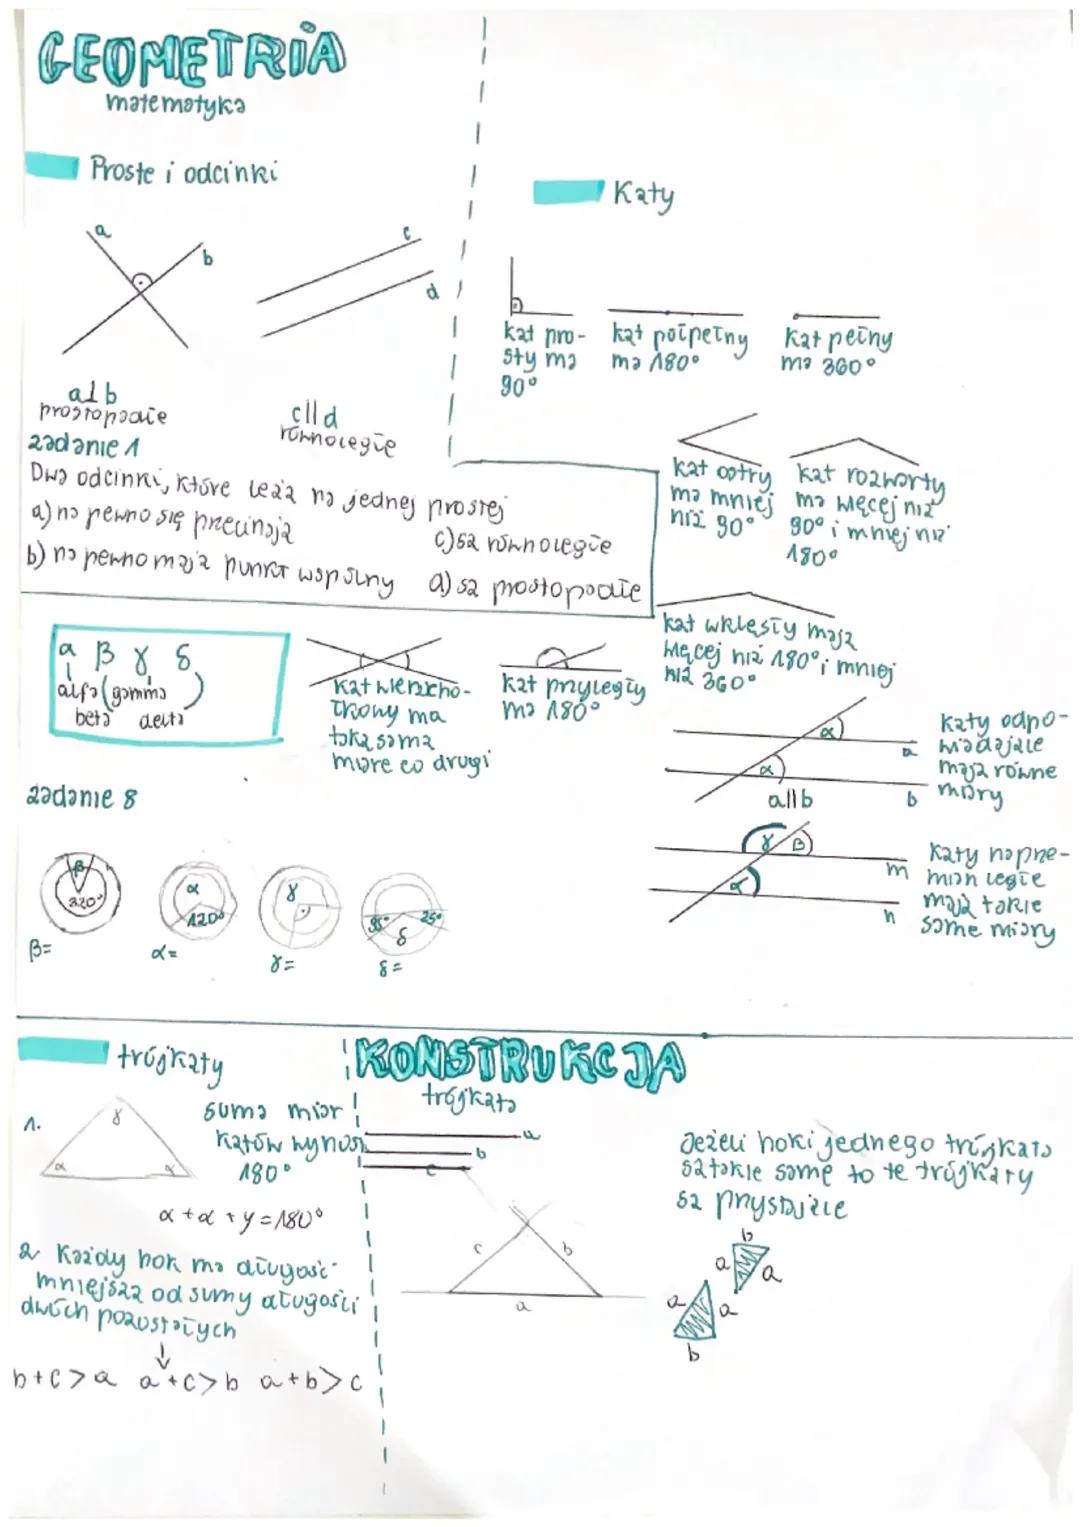 GEOMETRIA
matematyka
Proste i odcinki
a
b
c
d
a⊥b
prostopadłe
c||d
równoległe
zadanie 1
Dwa odcinki, które leżą na jednej prostej
a) na pewno się przecinają
c) są równoległe
b) na pewno mają punkt wspólny
d) są prostopadłe
Kąty
kąt pro-
sty ma
90°
kąt półpełny
ma 180°
kąt pełny
ma 360°
kąt ostry
ma mniej
niż 90°
kąt rozwarty
ma więcej niż
90° i mniej niż
180°
kąt wklęsły mają
więcej niż 180° i mniej
niż 360°
α β γ δ
alfa (gamma)
beta delta
kąt wierzcho-
łkowy ma
taką samą
miarę co drugi
kąt przyległy
ma 180°
α
α
a
b
a||b
kąty odpo-
wiadające
mają równe
miary
γ β
α
m
n
kąty naprze-
mian ległe
mają takie
same miary
zadanie 8
β
320°
β=
α
120°
α=
γ
γ=
35°
25°
δ
δ=
trójkąty
1.
γ
α
α
suma miar
kątów wynosi
180°
α+α+γ=180°
2. Każdy bok ma długość
mniejszą od sumy długości
dwóch pozostałych
↓
b+c>a a+c>b a+b>c
KONSTRUKCJA
trójkąta
a
b
c
c
b
a
Jeżeli boki jednego trójkąta
są takie same to te trójkąty
są przystające
b
a
a
a
a
b